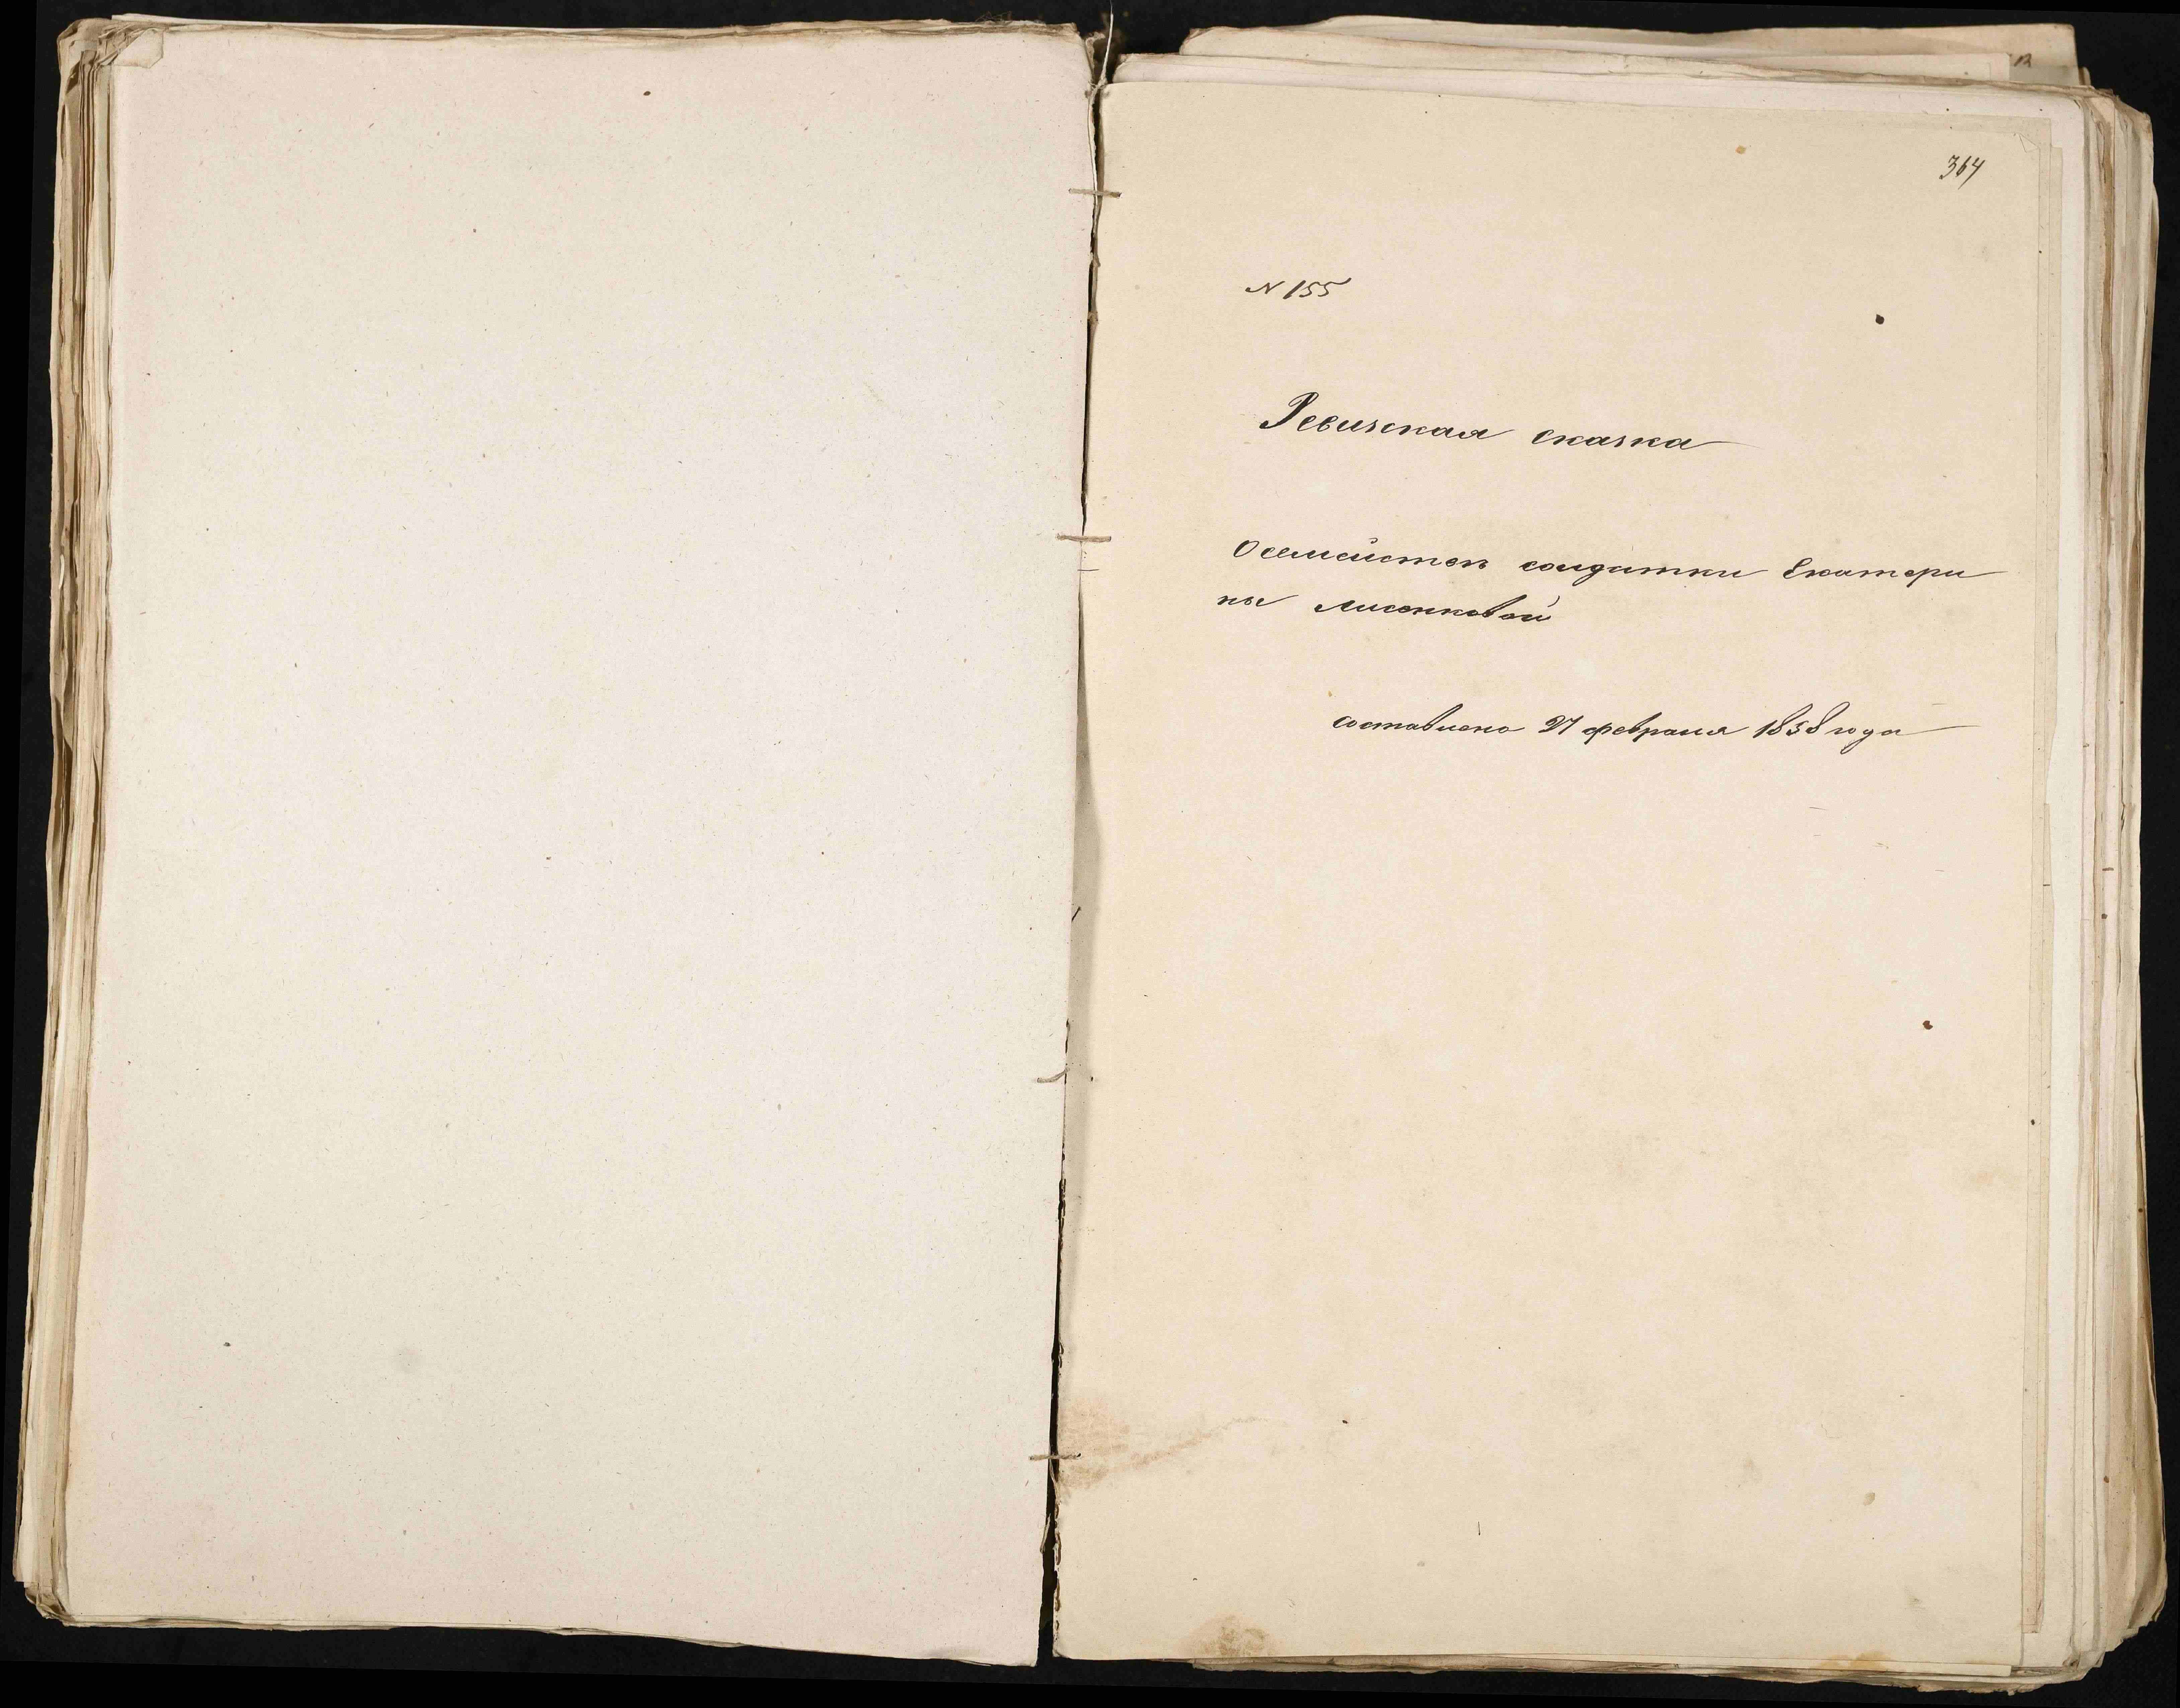 364
N 155
Ревизская сказка
О семействе солдатки Екатери
ны Лисенковой
составлена 27 февраля 1858 года